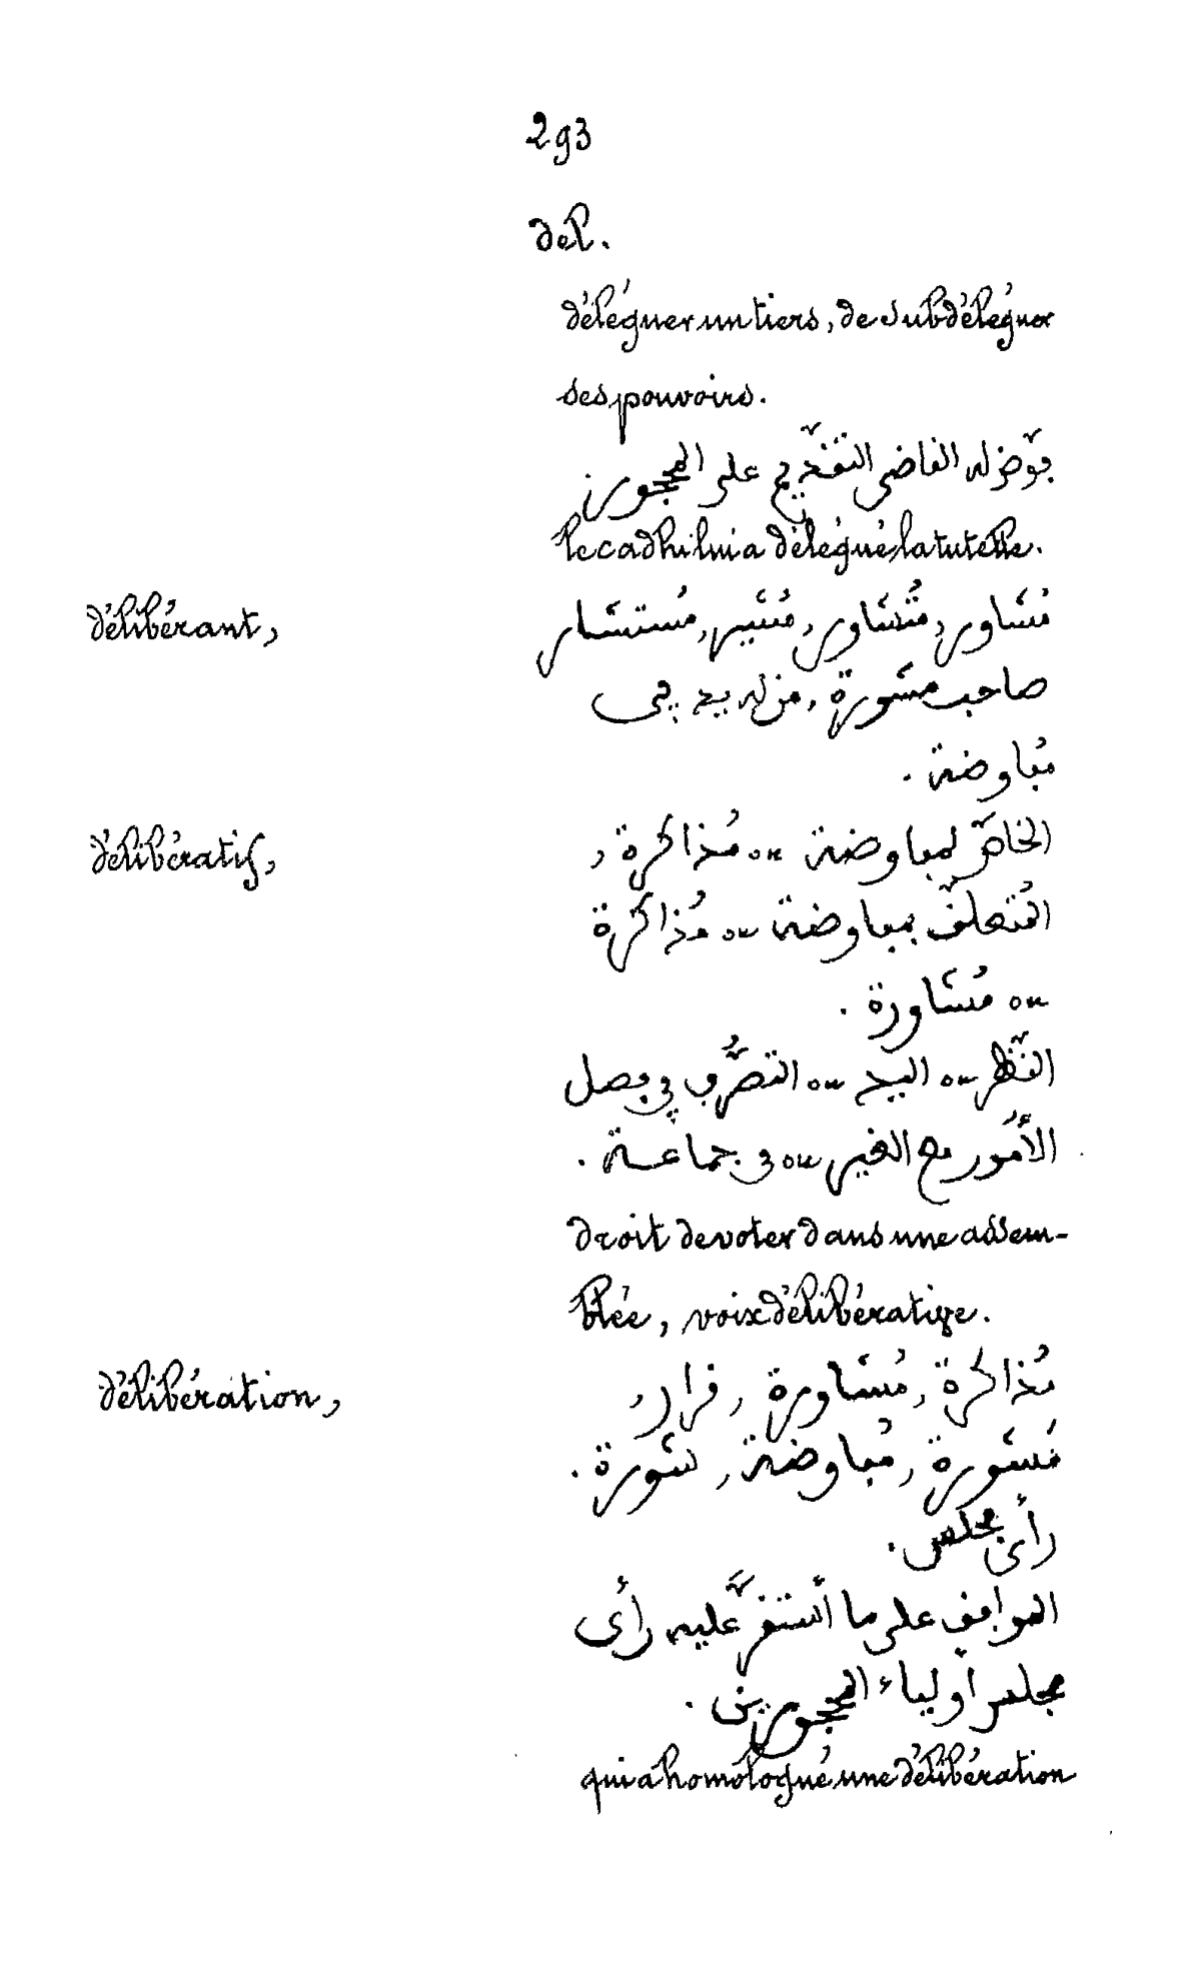 293
del.
déléguer un tiers, de subdéléguer
ses pouvoirs.
فوّض له القاضي التقديم على المحجور
le cadhi lui a délégué la tutelle.
délibérant, مُشَاور, مُتشَاور, مُشير, مُستشَار
صاحب مشورة, من له يد في
مُفاوضة.
délibératif, الخاصّ لمفاوضة ou مُذاكرة,
المُتعلّق بمفاوضة ou مُذاكرة
ou مُشَاورة.
النّظر ou اليد ou التصرُّف في فصل
الأُمُور مع الغير ou في جماعة.
droit de voter dans une assem-
blée, voix délibérative.
délibération, مُذاكرة, مُشَاورة, قرار,
مَشورة, مُفاوضة, شورة.
رأي مجلس.
الموافق على ما أستقرَّ عليه رأي
مجلس أولياء المحجورين.
qui a homologué une délibération